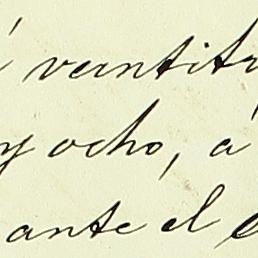 á veintitr
y ocho, á
ante el